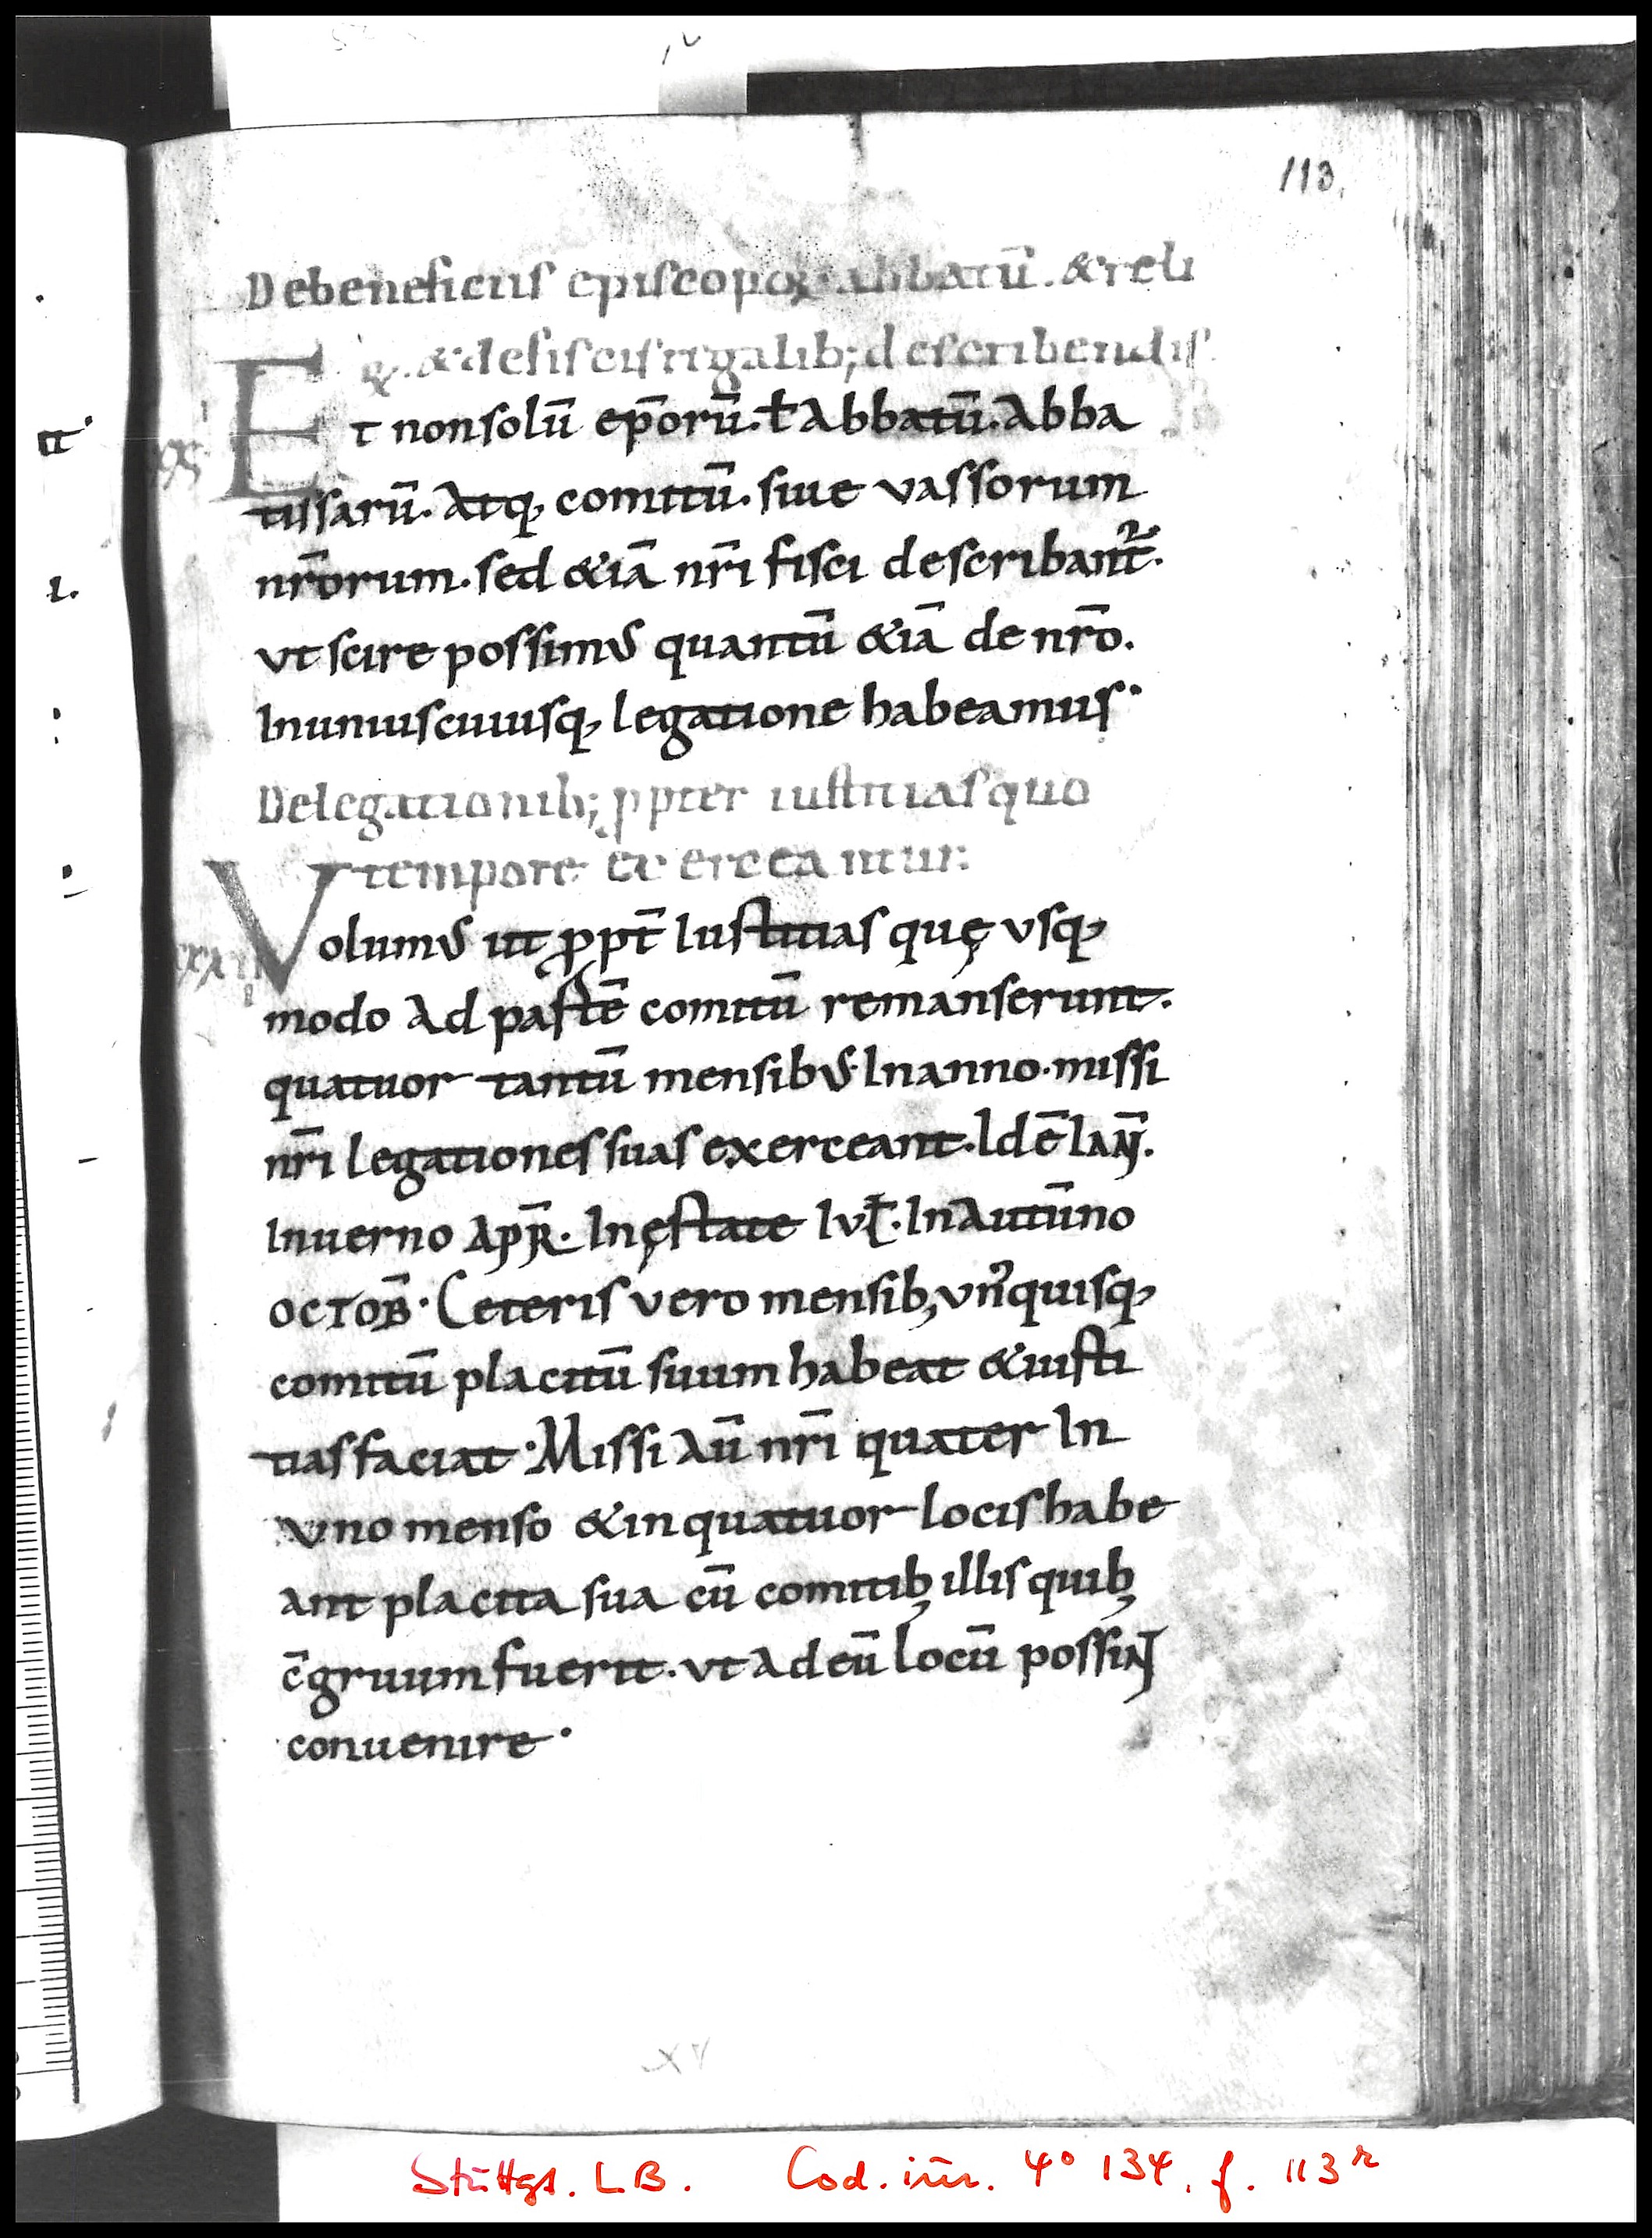 113
De beneficiis episcopoꝝ. abbatū. & reli
qꝝ. & de fiscis regalib; describendis
Et non solū ep̄orū. ł Abbatū. Abba
tissarū. Atq, comitū. siue vassorum
nr̄orum. sed &iā nr̄i fisci describant̄ᷣ.
vt scire possimꝰ quantū &iā de nr̄o.
In uniuscuiusq, legatione habeamus.
De legationib; ꝓpter iustitias quo
tempore exerceantur:
Volumꝰ ut ꝓpt̄ Iustitias quę vsq,
xxxii
modo Ad pastē comitū remanserunt.
quatuor tantū mensibꝰ. In anno. missi
nr̄i legationes suas exerceant. Idē IAN̄.
In uerno APR̄. In ęstate Ivł. In Autūno
OCTOB̄. Ceteris vero mensib, vnꝰquisq,
comitū placitū suum habeat & iusti
tias faciat. Missi Aū nr̄i quater In
vno menso & in quatuor locis habe
Ant placita sua cū comitib; illis quib;
c̄gruum fuerit. vt Ad eū locū possint
conuenire.
XV
Stuttgt. L.B. Cod. iur. 4° 134, f. 113r